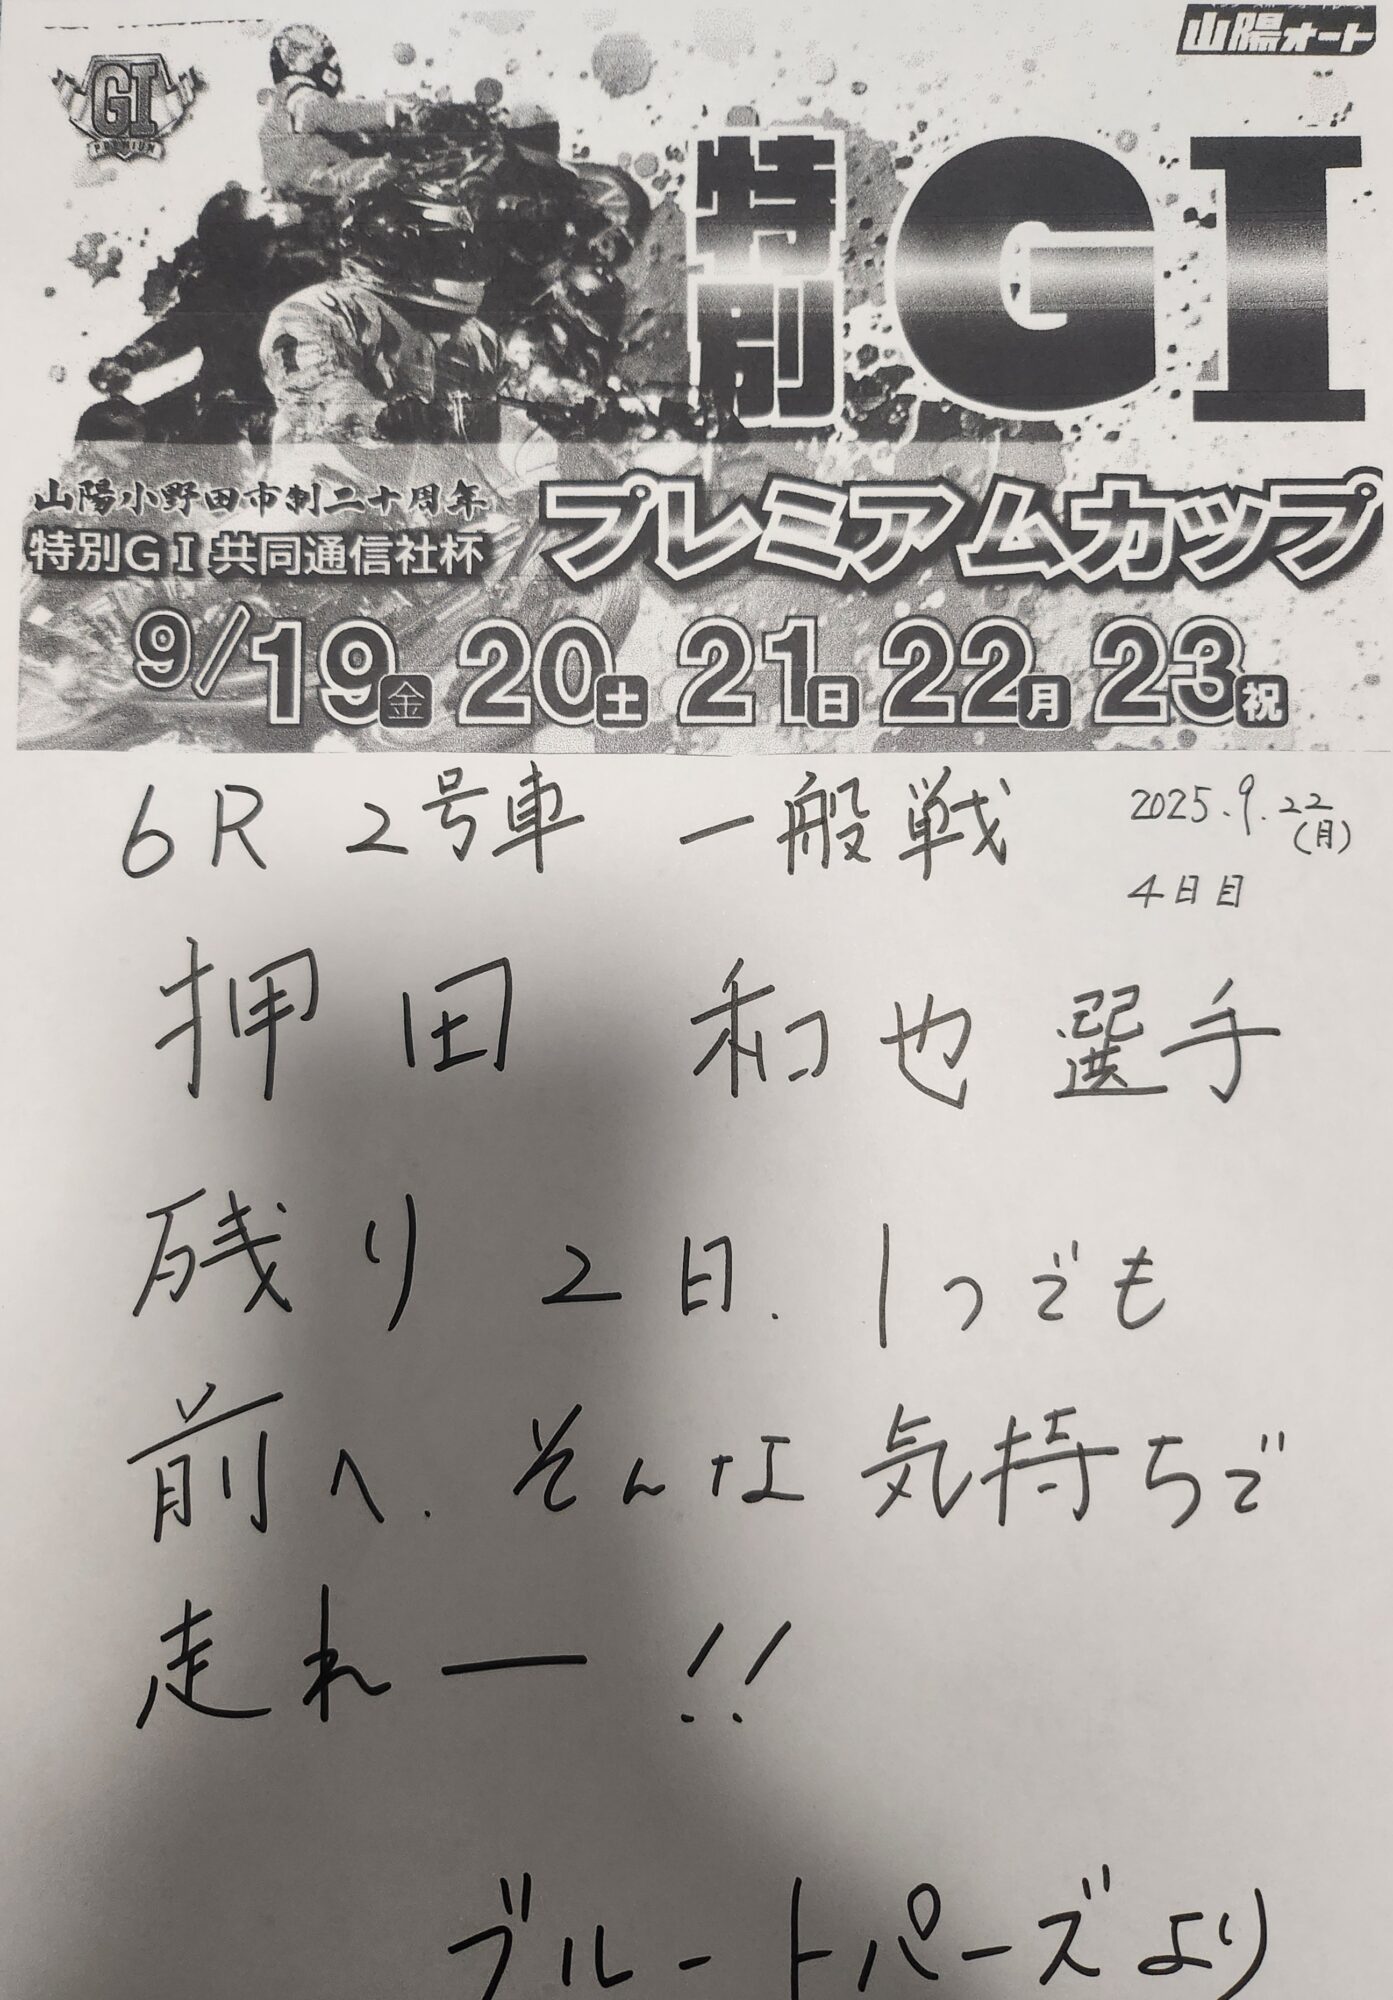 山陽オート
GI
PREMIUM
特別 GI
山陽小野田市制二十周年
特別GI共同通信社杯
プレミアムカップ
9/19金 20土 21日 22月 23祝
6R 2号車 一般戦
2025.9.22
(月)
4日目
押田 和也選手
残り 2日、1つでも
前へ、そんな気持ちで
走れー!!
ブルートパーズより